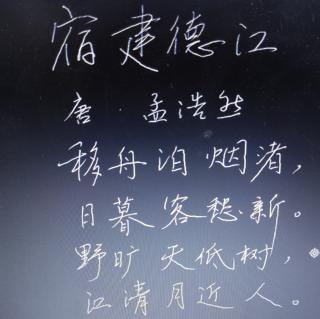 宿建德江
唐·孟浩然
移舟泊烟渚，
日暮客愁新。
野旷天低树，
江清月近人。